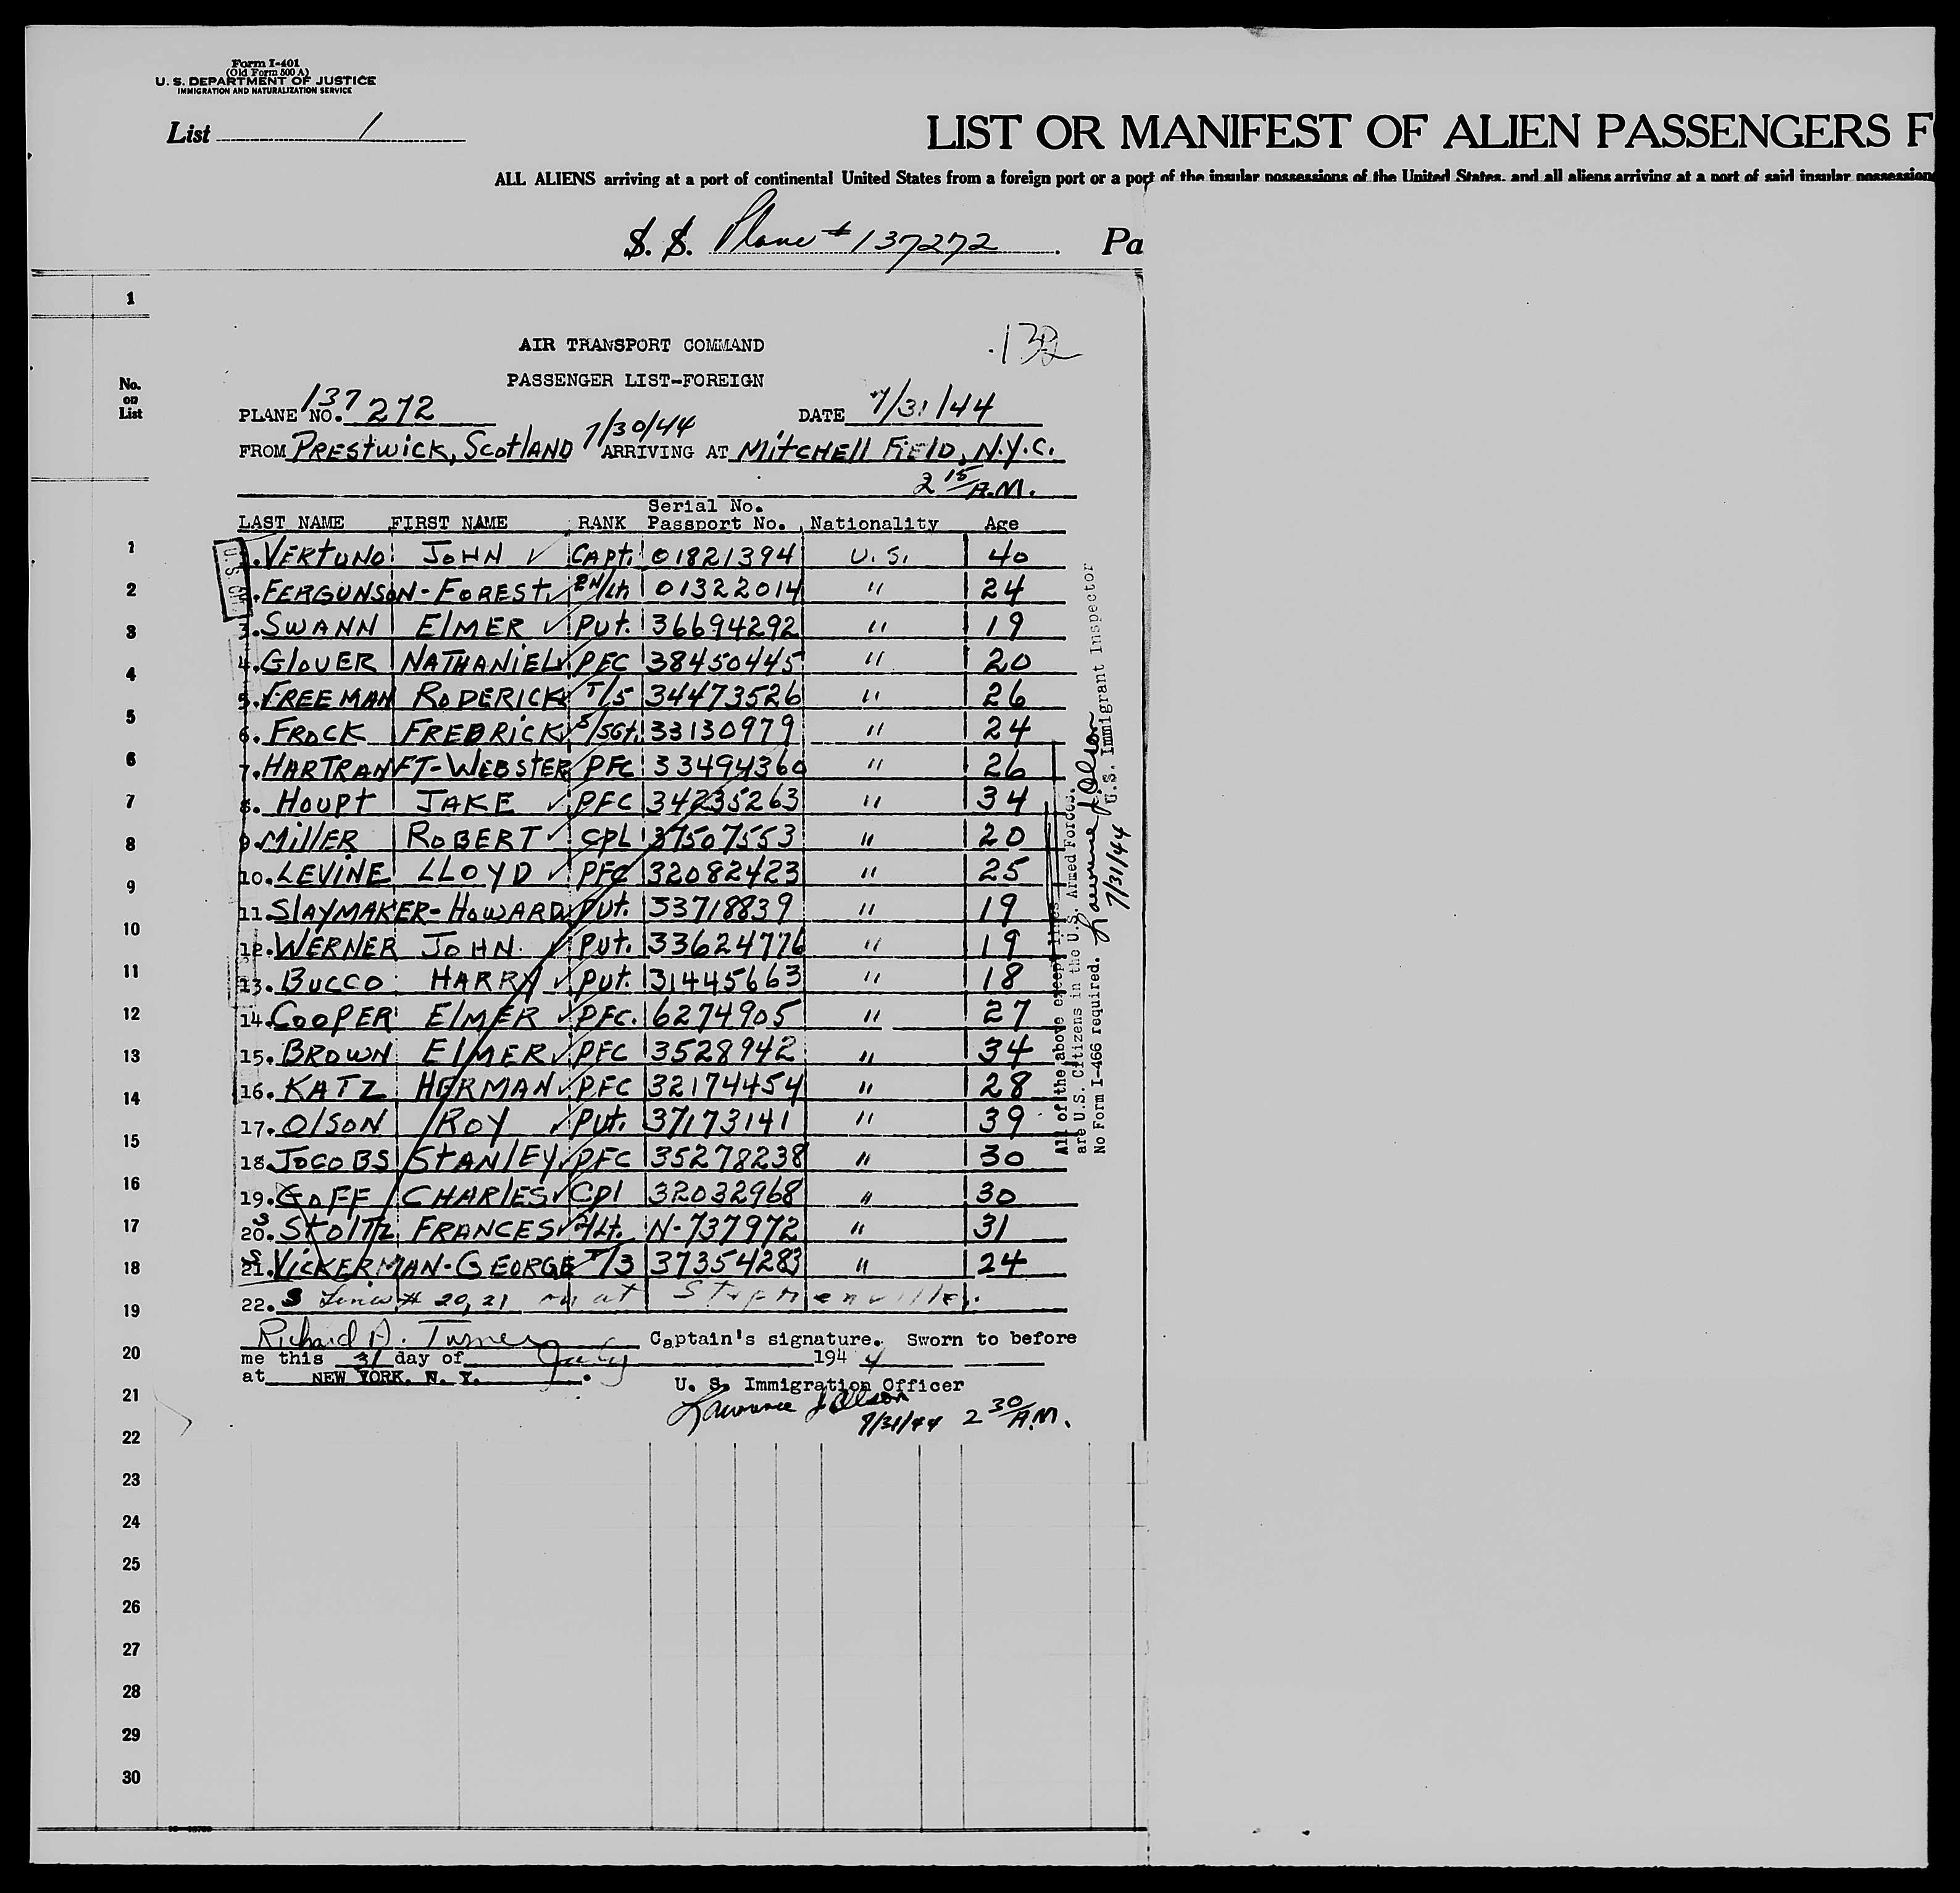 Form I-401
(Old Form 500 A)
U. S. DEPARTMENT OF JUSTICE
IMMIGRATION AND NATURALIZATION SERVICE
List 1
LIST OR MANIFEST OF ALIEN PASSENGERS F
ALL ALIENS arriving at a port of continental United States from a foreign port or a port of the insular possessions of the United States, and all aliens arriving at a port of said insular possession
S. S. Plane # 137272. Pa
1
AIR TRANSPORT COMMAND
132
PASSENGER LIST-FOREIGN
No. on List
PLANE NO. 137272 DATE 7/31/44
FROM PRESTWICK, SCOTLAND 7/30/44 ARRIVING AT MITCHELL FIELD, N.Y.C.
2 15/A.M.
LAST NAME FIRST NAME RANK Serial No. Passport No. Nationality Age
1. VERTUNO JOHN CAPT. 01821394 U.S. 40
2. FERGUNSON-FOREST 2N/Lt 01322014 " 24
3. SWANN ELMER PVT. 36694292 " 19
4. GLOVER NATHANIEL PFC 38450445 " 20
5. FREEMAN RODERICK T/5 34473526 " 26
6. FROCK FREDRICK S/SGT. 33130979 " 24
7. HARTRANFT-WEBSTER PFC 33494360 " 26
8. HOUPT JAKE PFC 34235263 " 34
9. MILLER ROBERT CPL 37507553 " 20
10. LEVINE LLOYD PFC 32082423 " 25
11. SLAYMAKER-HOWARD PVT. 33718839 " 19
12. WERNER JOHN PVT. 33624776 " 19
13. BUCCO HARRY PVT. 31445663 " 18
14. COOPER ELMER PFC. 6274905 " 27
15. BROWN ELMER PFC 3528942 " 34
16. KATZ HERMAN PFC 32174454 " 28
17. OLSON ROY PVT. 37173141 " 39
18. JOCOBS STANLEY PFC 35278238 " 30
19. GOFF CHARLES CPL 32032968 " 30
S 20. STOLTZ FRANCES Lt. N-737972 " 31
S 21. VICKERMAN-GEORGE T/3 37354283 " 24
22. S Lines # 20, 21 on at Stephenville.
Richard A. Turner Captain's signature. Sworn to before
me this 31 day of July 1944
at NEW YORK, N. Y.
U. S. Immigration Officer
Lawrence J. Olson
7/31/44 2 30/A.M.
All of the above except lines
are U.S. Citizens in the U.S. Armed Forces.
No Form I-466 required. Lawrence J. Olson
U.S. Immigrant Inspector
7/31/44
1
2
3
4
5
6
7
8
9
10
11
12
13
14
15
16
17
18
19
20
21
22
23
24
25
26
27
28
29
30